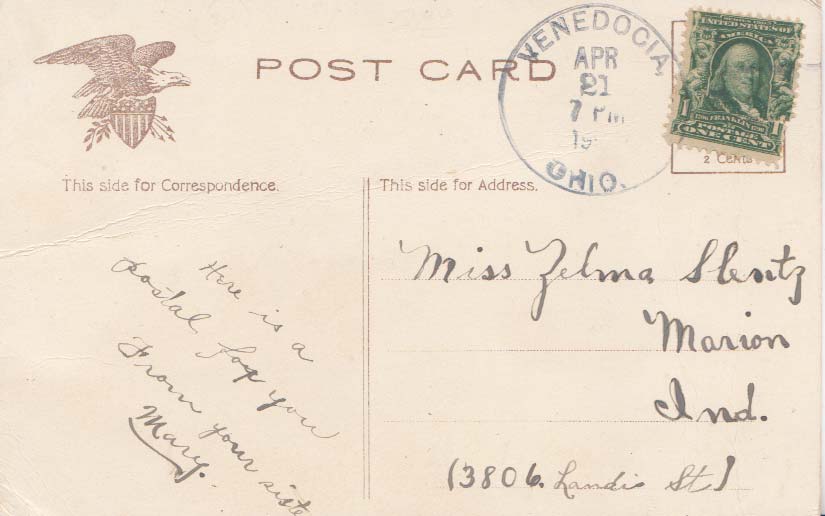 POST CARD
VENEDOCIA,
APR
21
7 PM
19
OHIO.
UNITED STATES OF
AMERICA
1 1
FRANKLIN
POSTAGE
ONE CENT
2 Cents
This side for Correspondence.
This side for Address.
Here is a
postal for you
From your siste
Mary.
Miss Zelma Slentz
Marion
Ind.
(3806. Landis St)